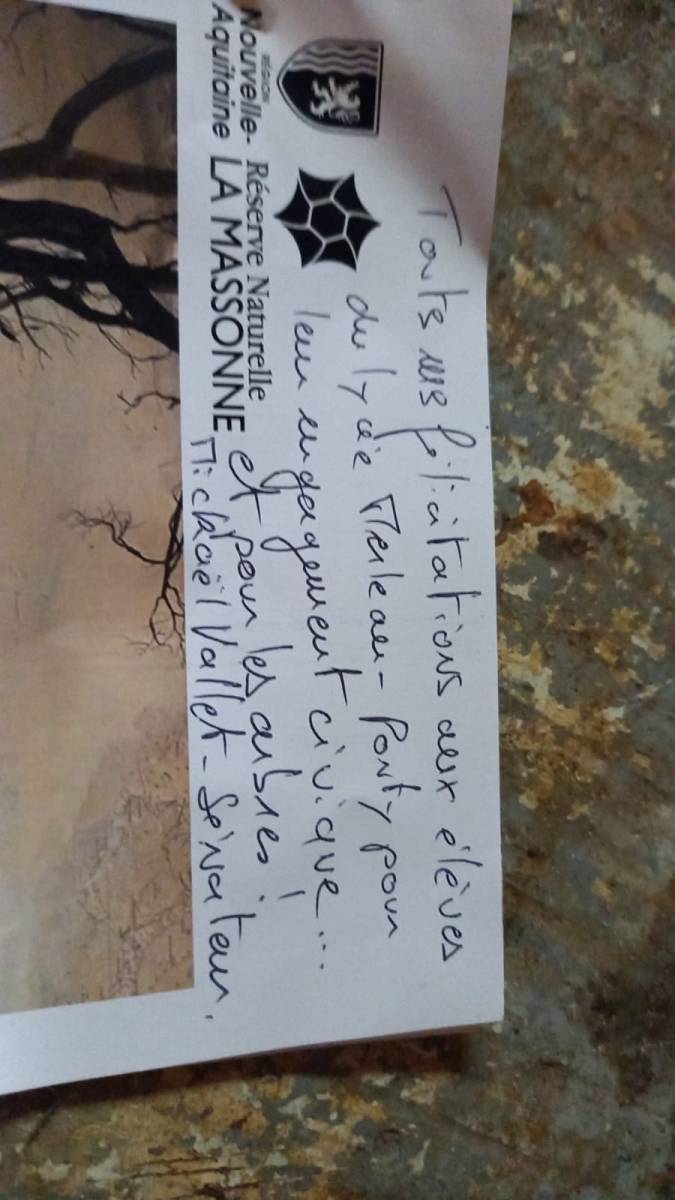 Touts mes félicitations aux élèves
du lycée Merleau-Ponty pour
leur engagement civique...
et pour les arbres !
Mickaël Vallet - Sénateur.
RÉGION
Nouvelle-
Aquitaine
Réserve Naturelle
LA MASSONNE